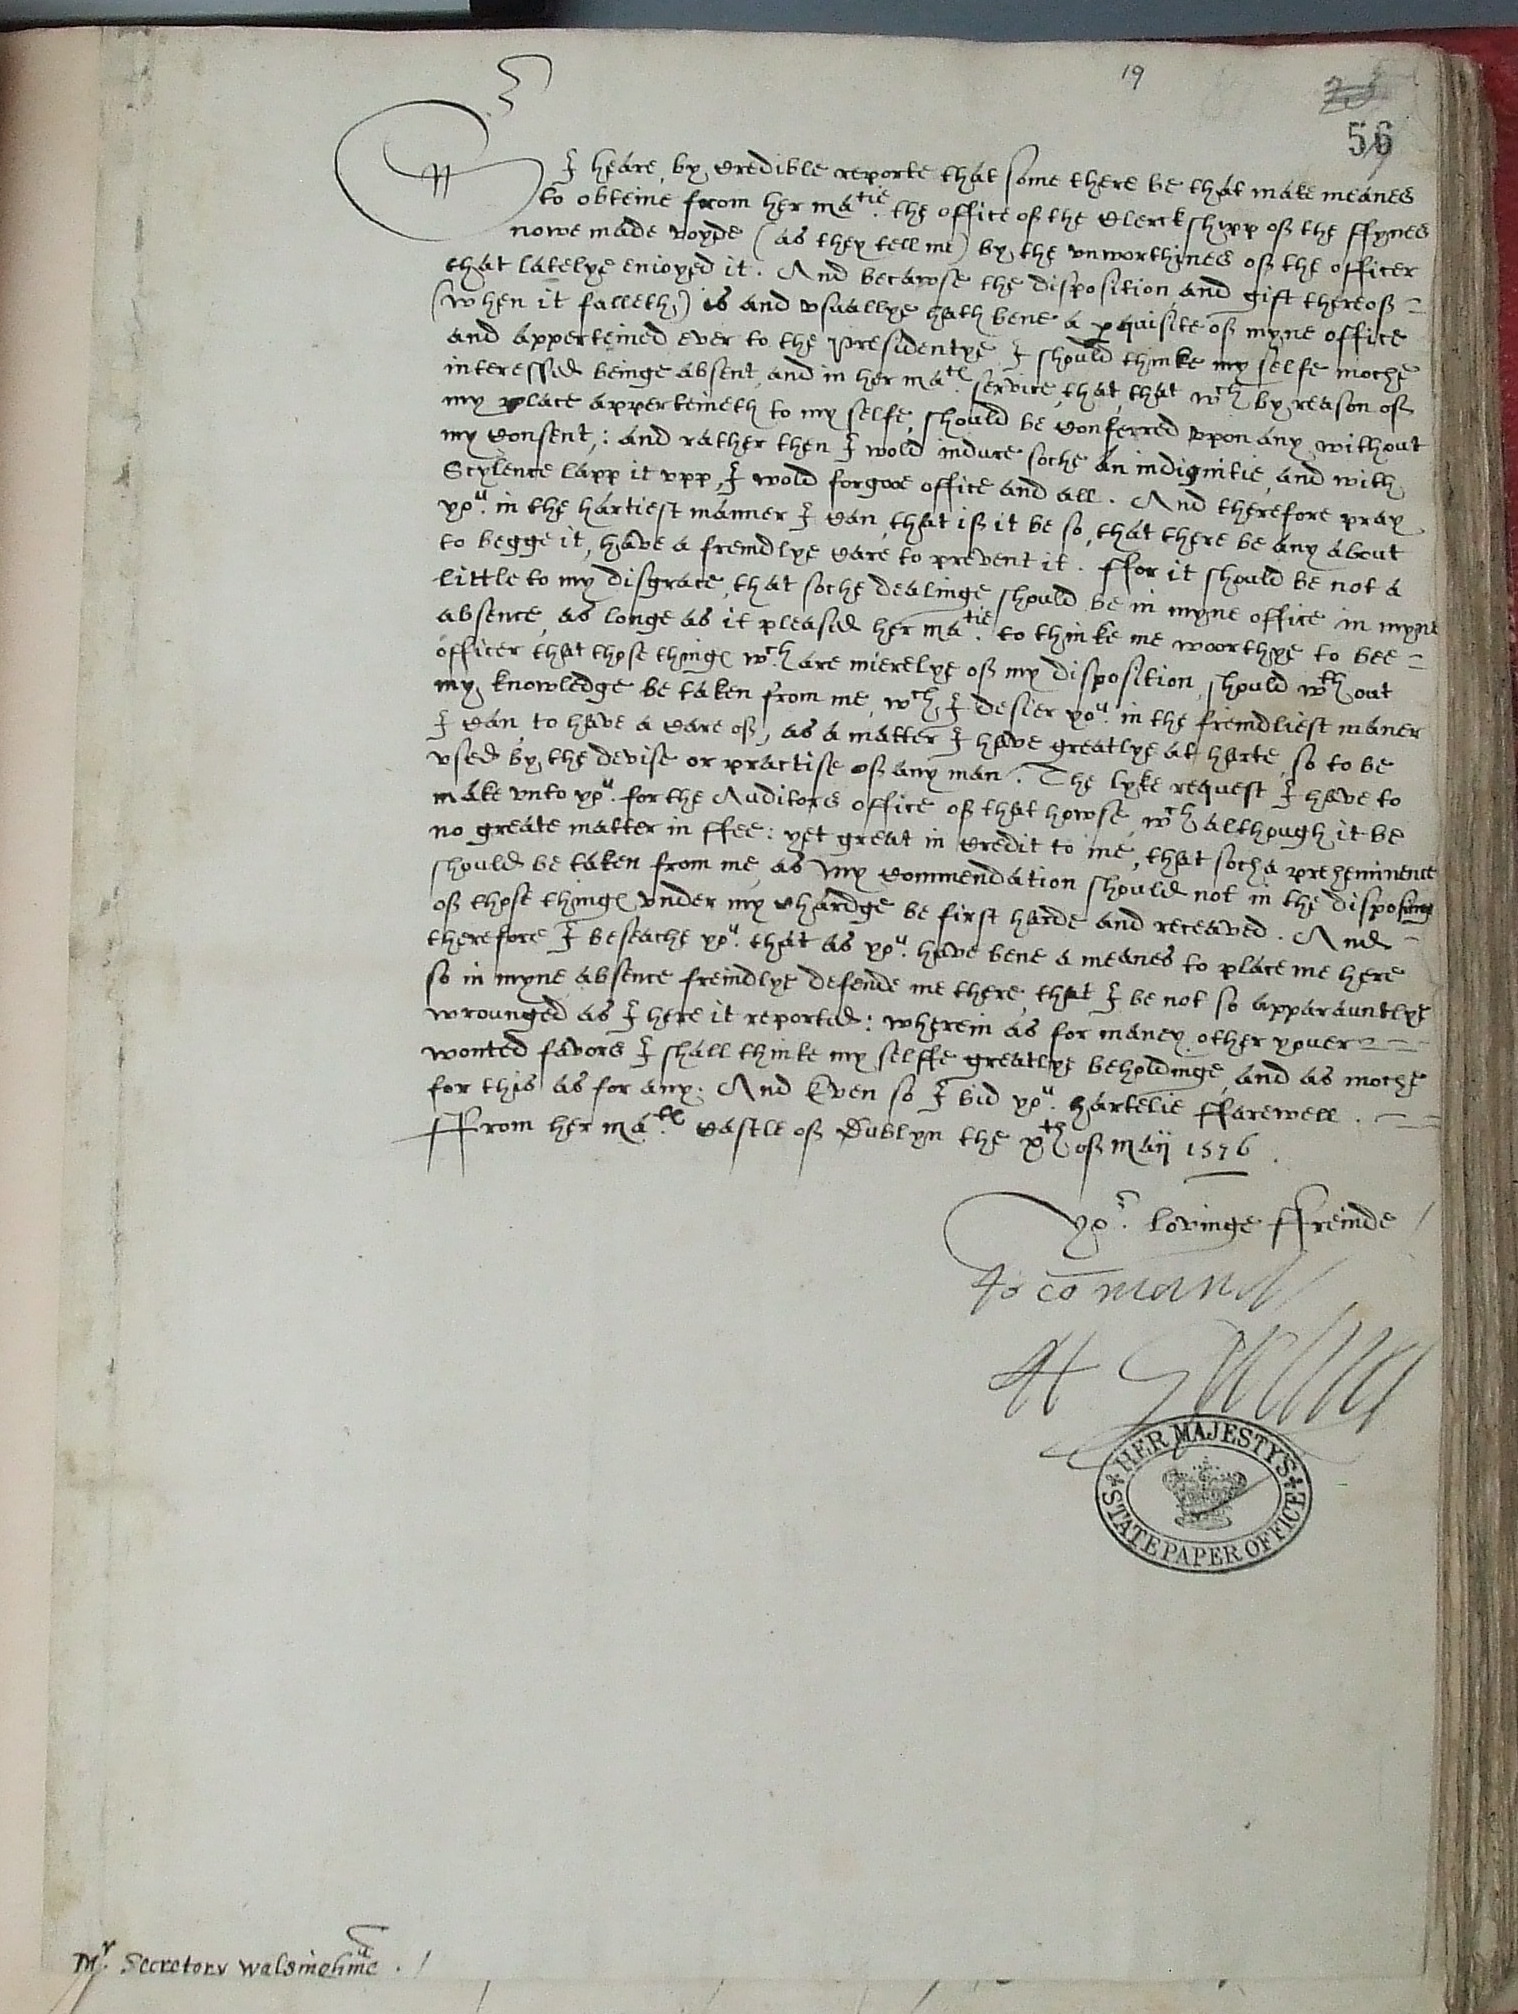 19
23
56
Sr
I heare, by credible reporte that some there be that make meanes
to obteine from her matie. the office of the Clerckshipp of the ffynes
nowe made voyde (as they tell me) by the vnworthines of the officer
that latelye enioyed it. And becawse the disposition and gift thereof
(when it falleth,) is and vsuallye hath bene a pquisite of myne office
and apperteined ever to the Presidentye I should thinke my selfe moche
interessed beinge absent, and in her mats. service, that, that wch by reason of
my place apperteineth to my selfe, should be conferred vpon any without
my consent,: and rather then I wold indure soche an indignitie, and with
Scylence lapp it vpp, I wold forgooe office and all. And therefore pray
you. in the hartiest manner I can, that if it be so, that there be any about
to begge it, have a freindlye care to prevent it. ffor it should be not a
little to my disgrace, that soche dealinge should be in myne office in myne
absence, as longe as it pleased her matie. to thinke me woorthye to bee
officer that those things wch. are mierelye of my disposition, should wthout
my knowledge be taken from me, wch I desier you. in the freindliest maner
I can, to have a care of, as a matter I have greatlye at harte, so to be
vsed by the devise or practise of any man. The lyke request I have to
make vnto you. for the Auditors office of that howse, wch although it be
no greate matter in ffee: yet great in credit to me, that soch a preheminence
should be taken from me, as my commendation should not in the disposing
of those things vnder my chardge be first harde and receaved. And
therefore I beseache you. that as you. have bene a meanes to place me here
so in myne absence freindlye defende me there, that I be not so apparauntlye
wrounged as I here it reported: wherein as for maney other youer
wonted favors I shall thinke my selffe greatlye beholdinge, and as moche
for this as for any. And Even so I bid you. hartelie ffarewell.
ffrom her mats. Castle of Dublyn the xth of Maij 1576.
yor. lovinge ffreinde
to comand
H Sydney
HER MAJESTY'S STATE PAPER OFFICE
Mr. Secretory walsinghme.